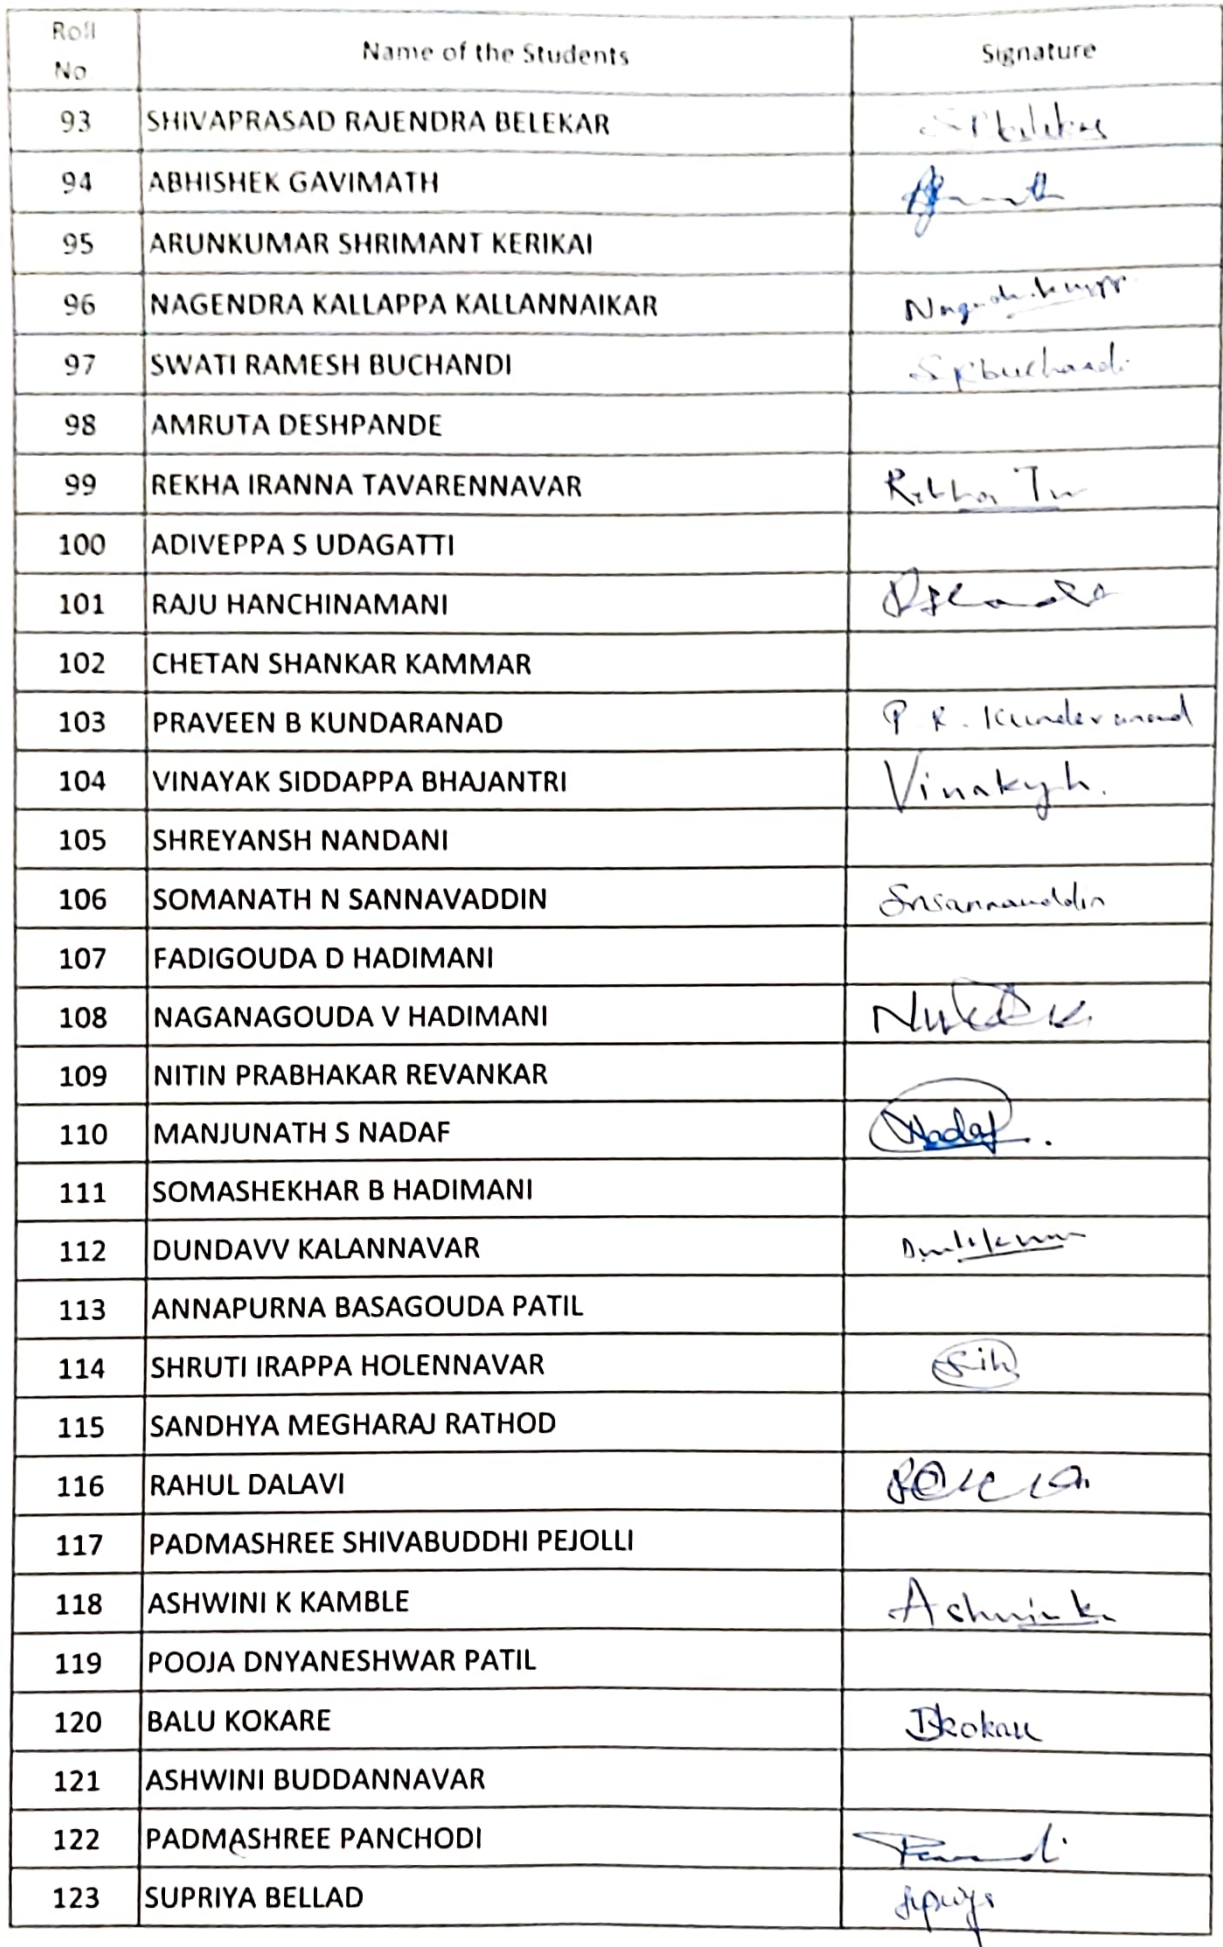 Roll No Name of the Students Signature
93 SHIVAPRASAD RAJENDRA BELEKAR
94 ABHISHEK GAVIMATH
95 ARUNKUMAR SHRIMANT KERIKAI
96 NAGENDRA KALLAPPA KALLANNAIKAR
97 SWATI RAMESH BUCHANDI S R buchandi
98 AMRUTA DESHPANDE
99 REKHA IRANNA TAVARENNAVAR
100 ADIVEPPA S UDAGATTI
101 RAJU HANCHINAMANI
102 CHETAN SHANKAR KAMMAR
103 PRAVEEN B KUNDARANAD
104 VINAYAK SIDDAPPA BHAJANTRI
105 SHREYANSH NANDANI
106 SOMANATH N SANNAVADDIN
107 FADIGOUDA D HADIMANI
108 NAGANAGOUDA V HADIMANI
109 NITIN PRABHAKAR REVANKAR
110 MANJUNATH S NADAF Nadaf
111 SOMASHEKHAR B HADIMANI
112 DUNDAVV KALANNAVAR
113 ANNAPURNA BASAGOUDA PATIL
114 SHRUTI IRAPPA HOLENNAVAR
115 SANDHYA MEGHARAJ RATHOD
116 RAHUL DALAVI
117 PADMASHREE SHIVABUDDHI PEJOLLI
118 ASHWINI K KAMBLE
119 POOJA DNYANESHWAR PATIL
120 BALU KOKARE
121 ASHWINI BUDDANNAVAR
122 PADMASHREE PANCHODI
123 SUPRIYA BELLAD